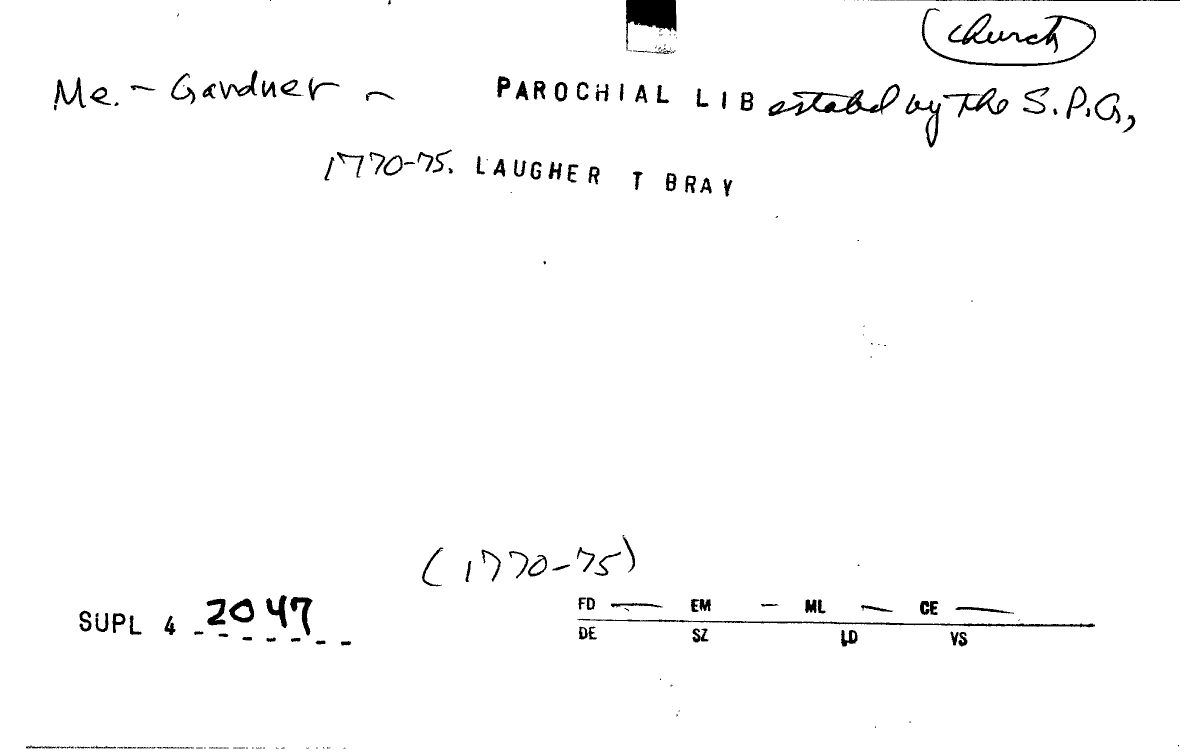 (church)
Me. - Gardner - PAROCHIAL LIB estabd by the S.P.G.,
1770-75. LAUGHER T BRAY
(1770-75)
SUPL 4 2047
FD — EM — ML — CE —
DE SZ LD VS